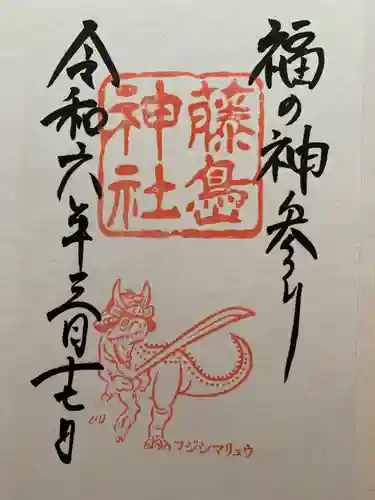 福の神参り
藤島神社
令和六年三月十七日
フジシマリュウ